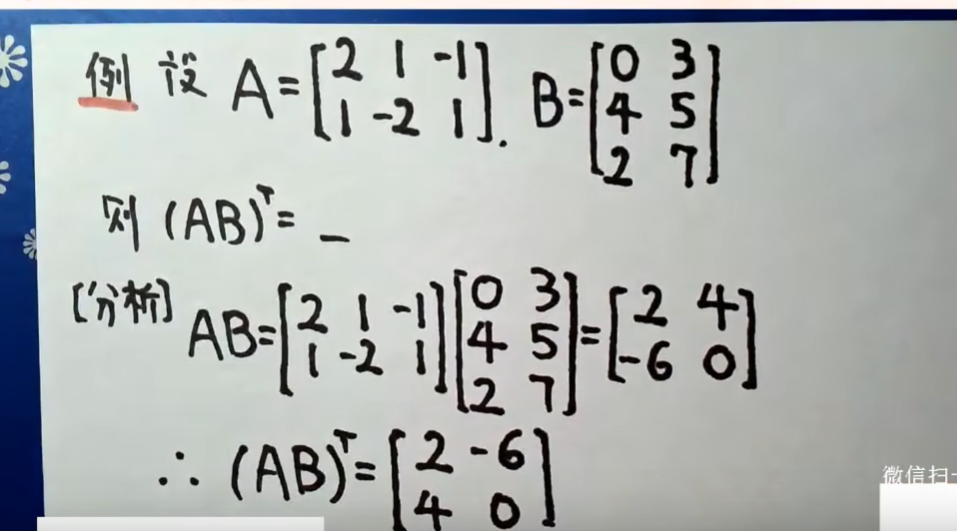 例 设 A=[2 1 -1; 1 -2 1]. B=[0 3; 4 5; 2 7]
则 (AB)ᵀ= _
[分析] AB=[2 1 -1; 1 -2 1][0 3; 4 5; 2 7]=[2 4; -6 0]
∴ (AB)ᵀ=[2 -6; 4 0]
微信扫一